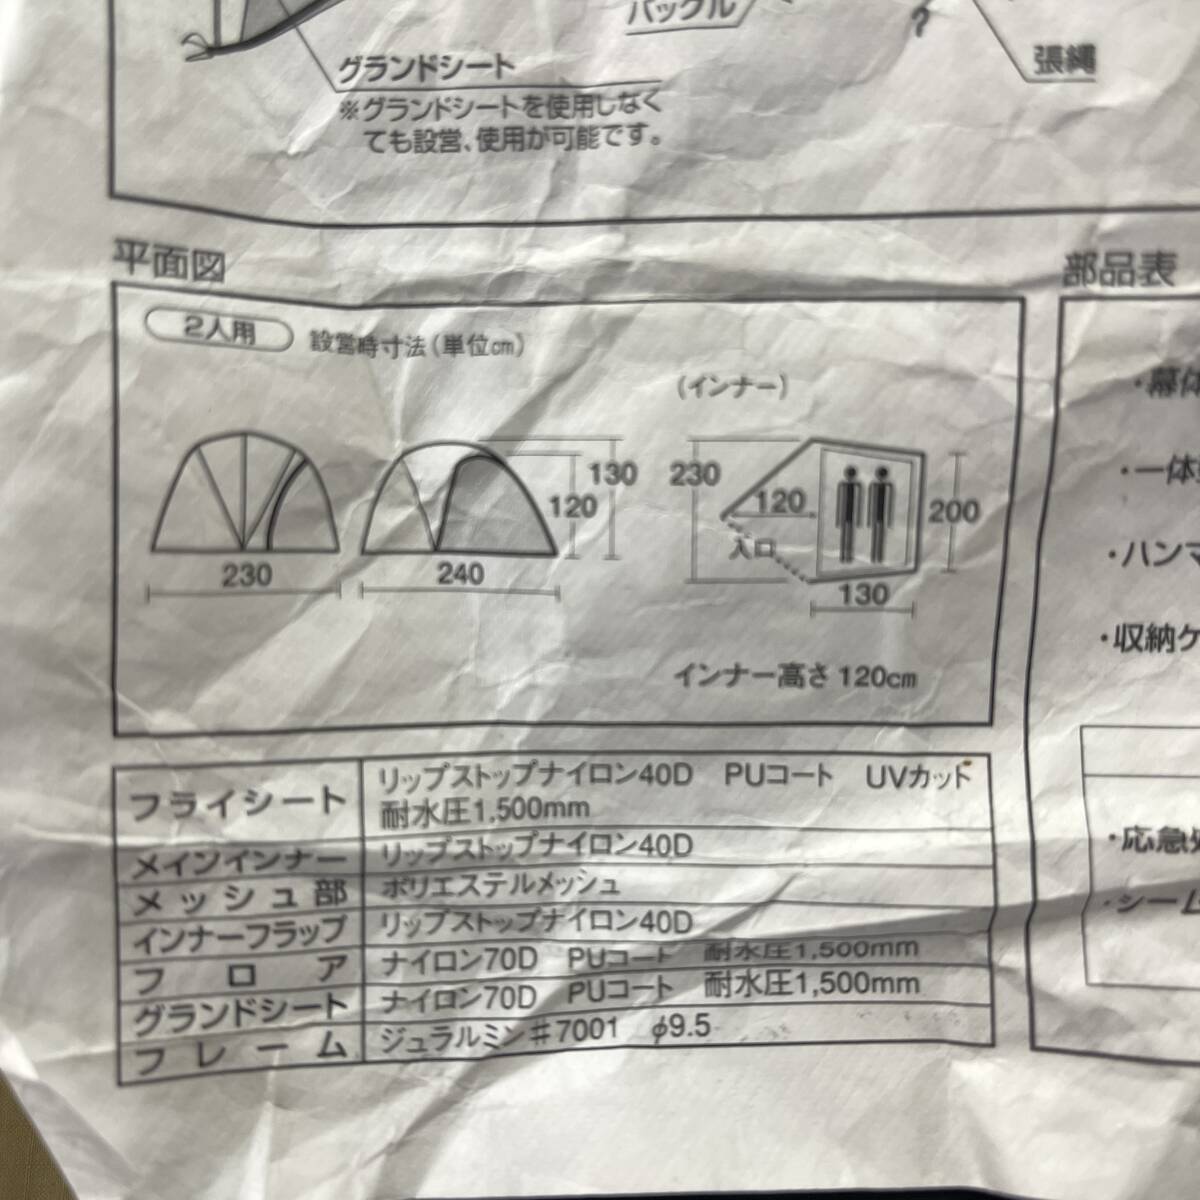 バックル
グランドシート
※グランドシートを使用しなく
ても設営、使用が可能です。
張縄
平面図
2人用 設営時寸法(単位cm)
(インナー)
230
240
130
120
230
120
入口
200
130
インナー高さ120cm
フライシート リップストップナイロン40D PUコート UVカット
耐水圧1,500mm
メインインナー リップストップナイロン40D
メッシュ部 ポリエステルメッシュ
インナーフラップ リップストップナイロン40D
フロア ナイロン70D PUコート 耐水圧1,500mm
グランドシート ナイロン70D PUコート 耐水圧1,500mm
フレーム ジュラルミン#7001 φ9.5
部品表
・幕体
・一体
・ハンマ
・収納ケ
・応急処
・シーム